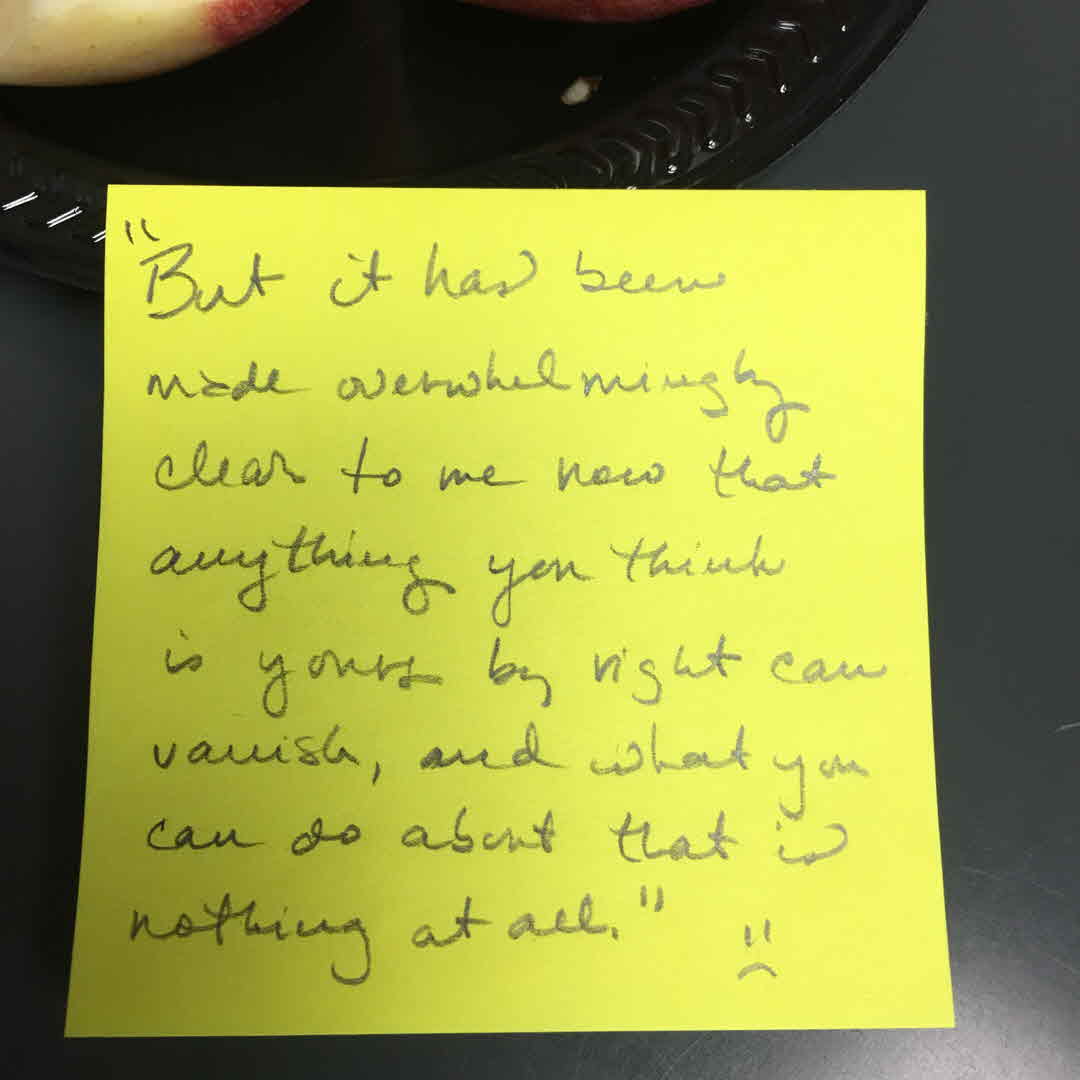 "But it has been
made overwhelmingly
clear to me now that
anything you think
is yours by right can
vanish, and what you
can do about that is
nothing at all." :(